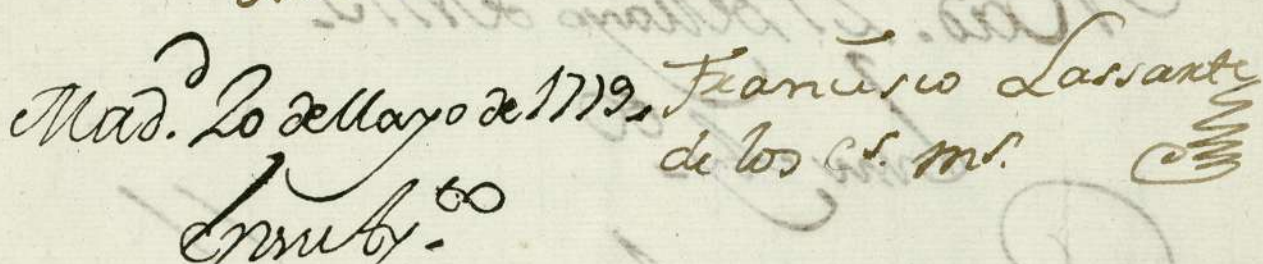 Mad.d 20 de Mayo de 1779.
Francisco Lassarte
de los Cs. ms.
En su Ay.to